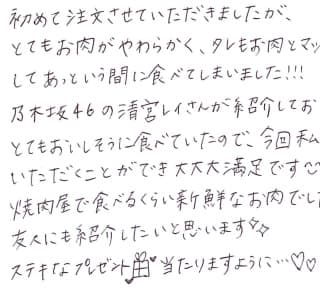 初めて注文させていただきましたが、
とてもお肉がやわらかく、タレもお肉とマッ
してあっという間に食べてしまいました!!!
乃木坂46の清宮レイさんが紹介してお
とてもおいしそうに食べていたので、今回私
いただくことができ大大大満足です
焼肉屋で食べるくらい新鮮なお肉でし
友人にも紹介したいと思います✧✧
ステキなプレゼント🎁♥当たりますように…♡♡